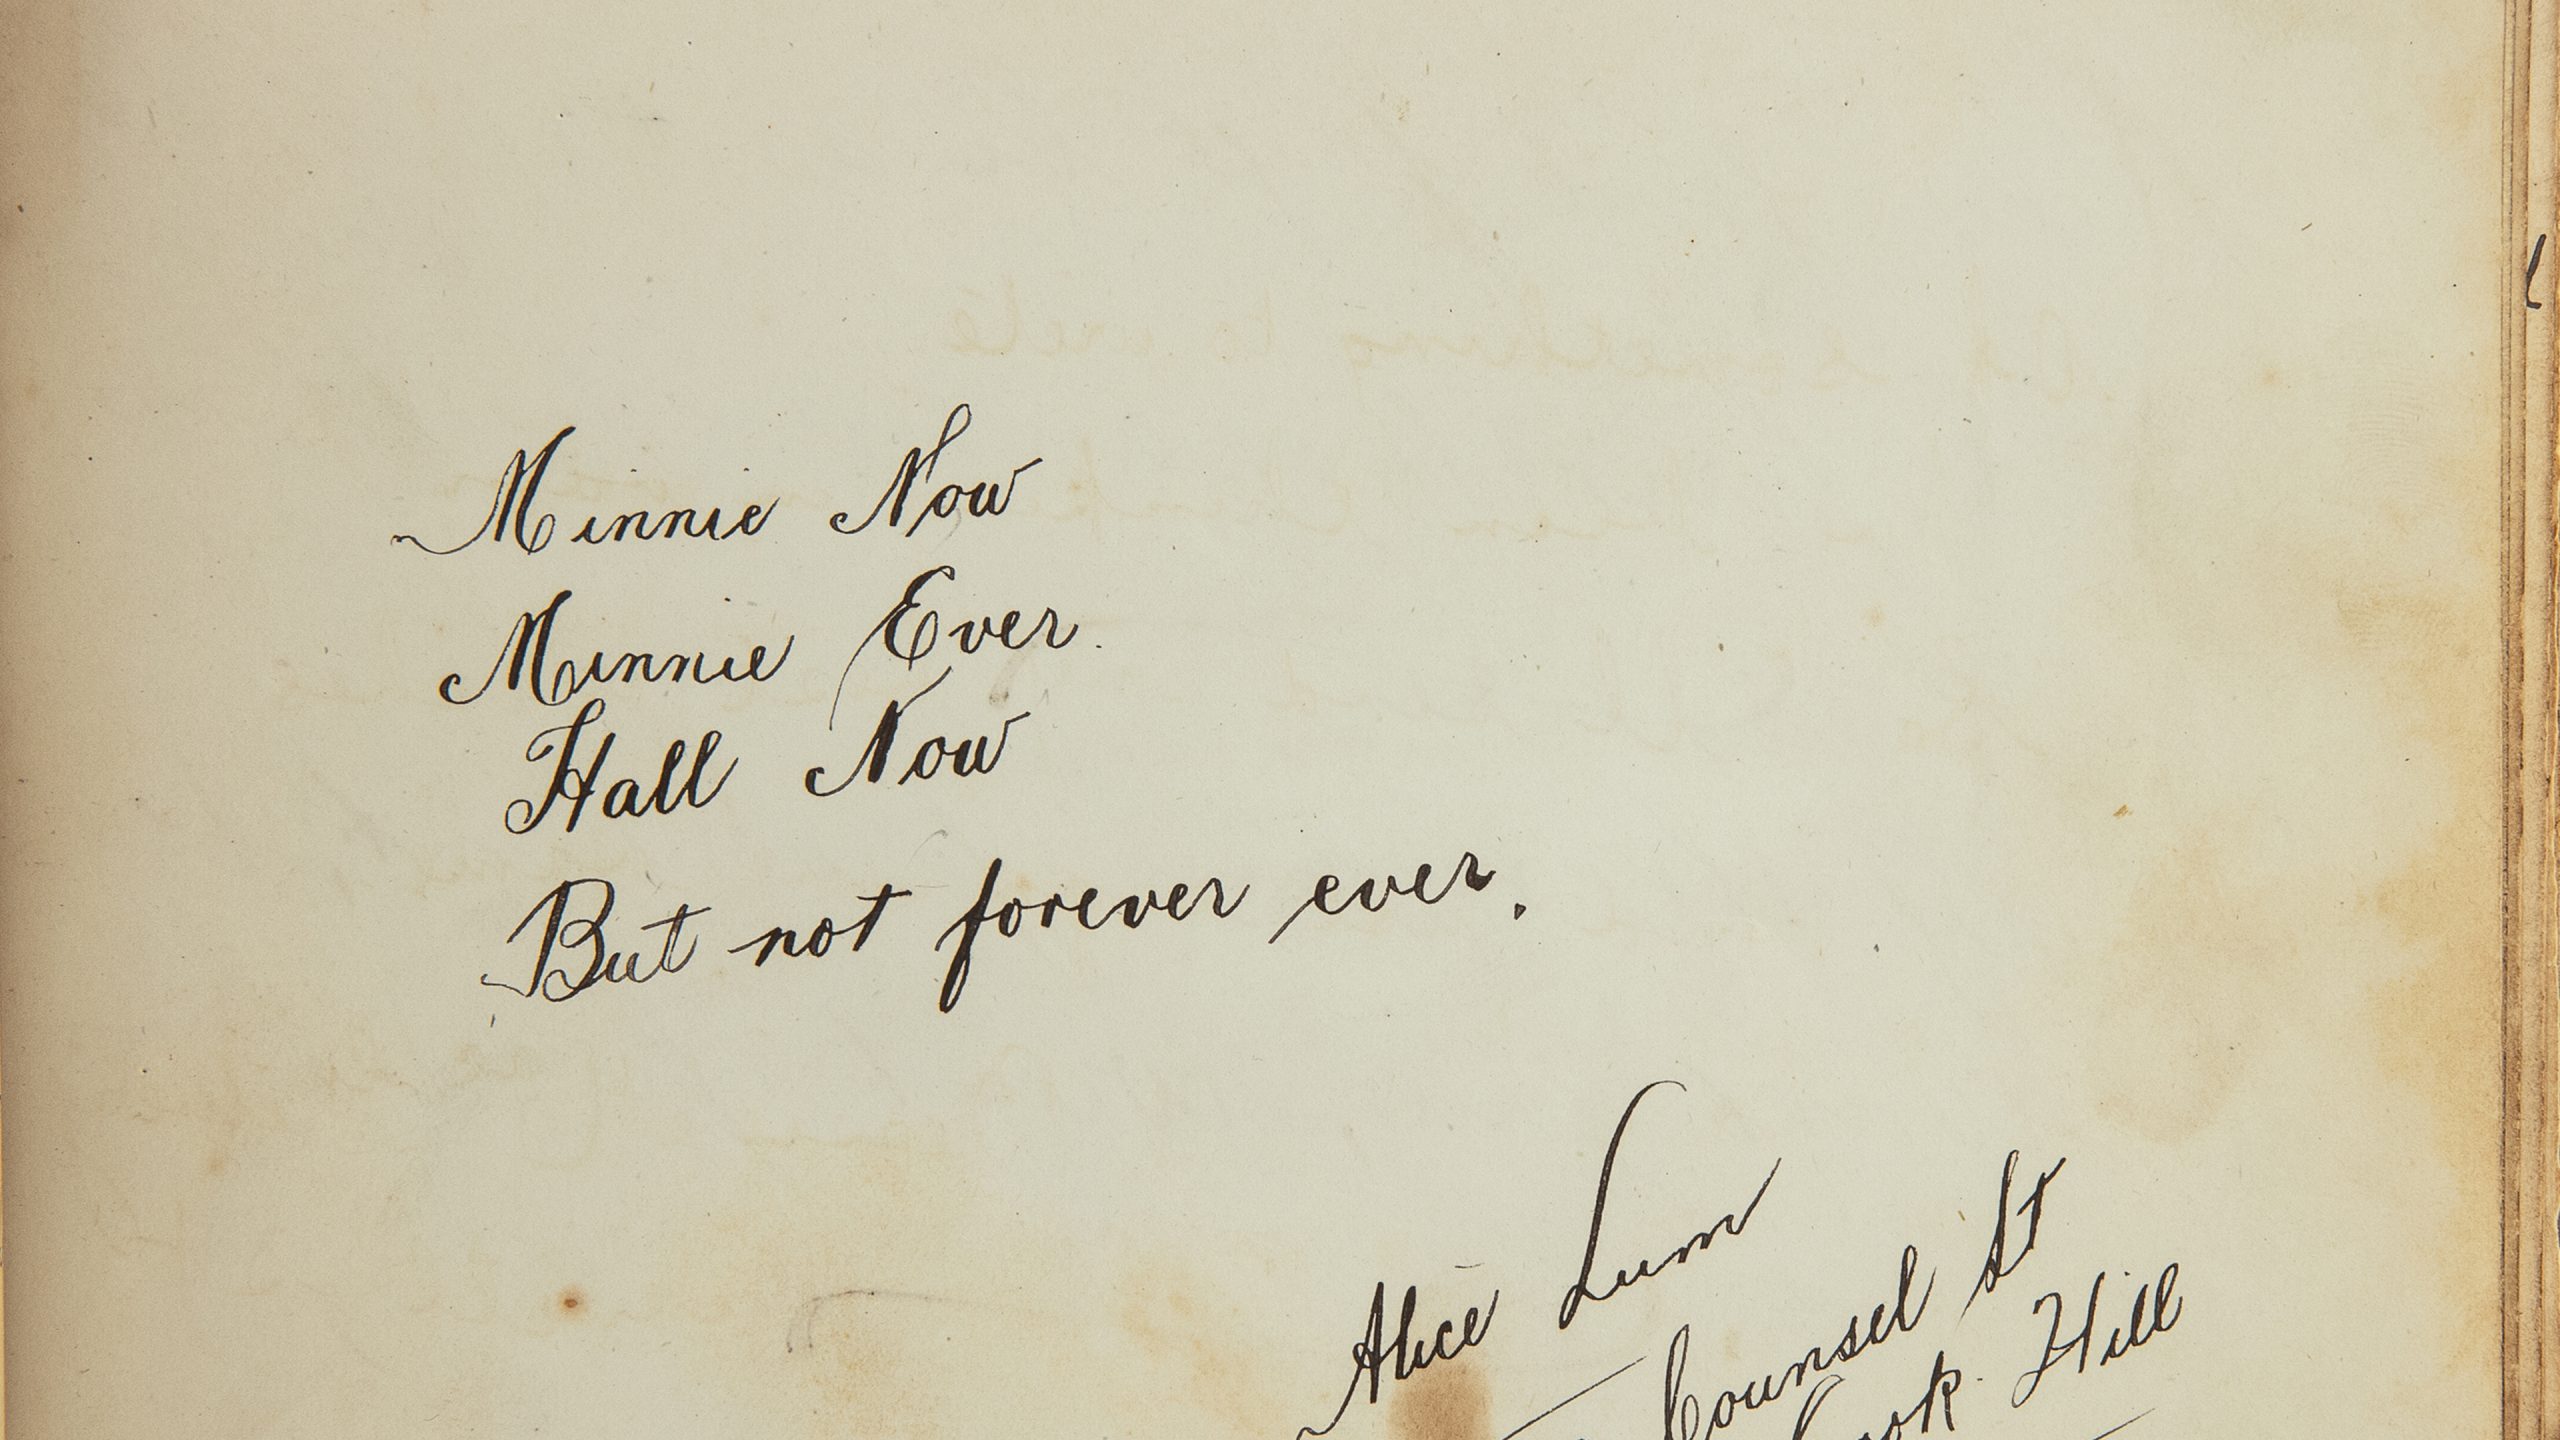 Minnie Now
Minnie Ever.
Hall Now
But not forever ever.
Alice Lum
Counsel St
Cook Hill